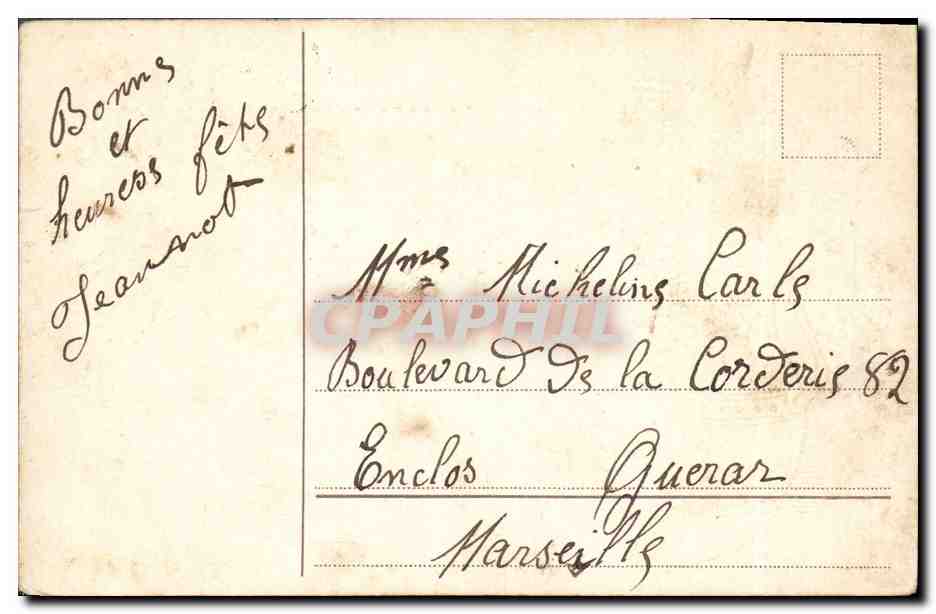 Bonne
et
heurese fête
Jeannot
Mme Micheline Carle
CPAPHIL
Boulevard De la Corderie 82
Enclos Querar
Marseille